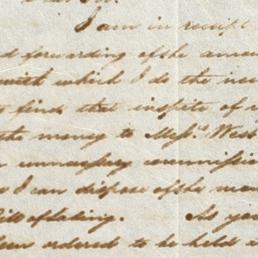 I am in receipt
forwarding of the amou
with which I do the
find that inspite of
the money to Mess^rs West
unnecessary commissio
I can dispose of the man
Bill of lading. As you
been ordered to be held